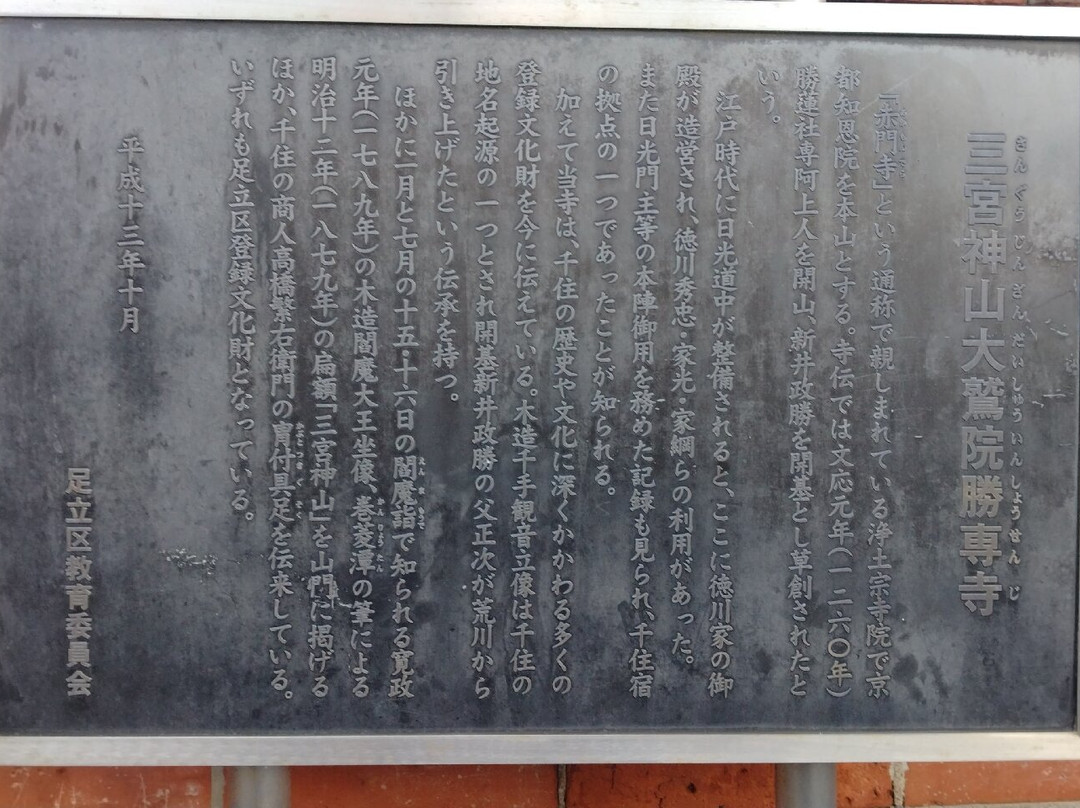 さんぐうじんざんだいしゅういんしょうせんじ
三宮神山大鷲院勝専寺
「赤門寺」という通称で親しまれている浄土宗寺院で京
都知恩院を本山とする。寺伝では文応元年(一二六〇年)
勝蓮社専阿上人を開山、新井政勝を開基とし草創されたと
いう。
江戸時代に日光道中が整備されると、ここに徳川家の御
殿が造営され、徳川秀忠・家光・家綱らの利用があった。
また日光門主等の本陣御用を務めた記録も見られ、千住宿
の拠点の一つであったことが知られる。
加えて当寺は、千住の歴史や文化に深くかかわる多くの
登録文化財を今に伝えている。木造千手観音立像は千住の
地名起源の一つとされ開基新井政勝の父正次が荒川から
引き上げたという伝承を持つ。
えんまもうで
ほかに一月と七月の十五・十六日の閻魔詣で知られる寛政
かんりょうたん
元年(一七八九年)の木造閻魔大王坐像、巻菱潭の筆による
明治十二年(一八七九年)の扁額「三宮神山」を山門に掲げる
かぶとつきぐそく
ほか、千住の商人高橋繁右衛門の冑付具足を伝来している。
いずれも足立区登録文化財となっている。
平成十三年十月
足立区教育委員会